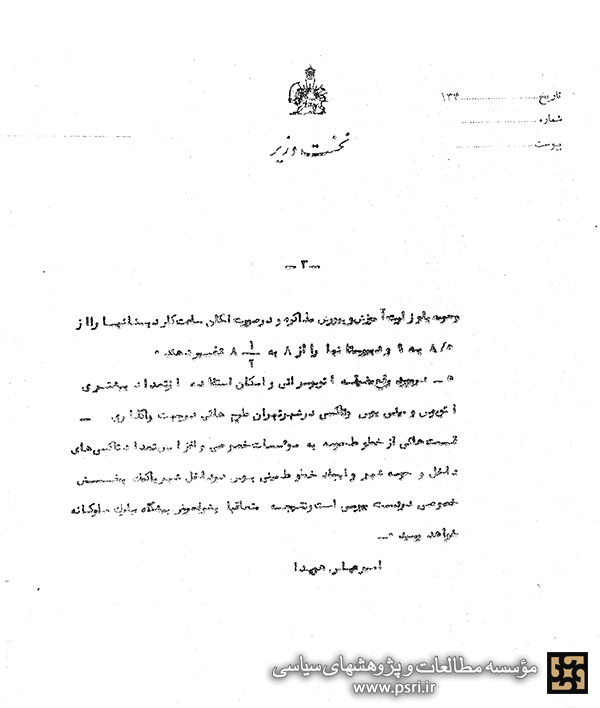 تاریخ ............ ۱۳۴
شماره ............
پیوست ............
نخست وزیر
ـ ۳ ـ
با وزارت آموزش و پرورش مذاکره و در صورت امکان ساعت کار دبستانها را از
۸/۵ به ۹ و دبیرستانها را از ۸ به ۸ ۱/۲ تغییر دهند ۰
۵ ـ در مورد وضع اتوبوسرانی و امکان استفاده از تعداد بیشتری
اتوبوس و مینی بوس و تاکسی در شهر تهران طرح هائی در جهت واگذاری ـ
قسمت هائی از خطوط حومه به موسسات خصوصی و افزایش تعداد تاکسی های
داخل و حومه شهر و ایجاد خطوط مینی بوس در داخل شهر با کمک بخش
خصوصی در دست بررسی است و نتیجه متعاقبا بشرفعرض پیشگاه مبارک ملوکانه
خواهد رسید ۰ ـ
امیرعباس هویدا
مؤسسه مطالعات و پژوهشهای سیاسی
www.psri.ir